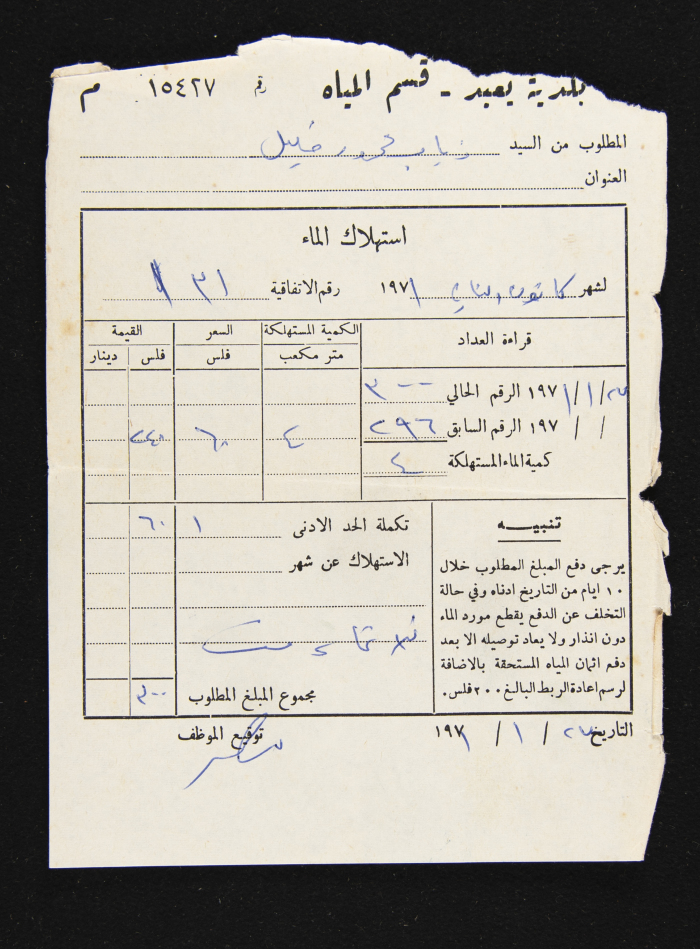 بلدية يعبد - قسم المياه رقم ١٥٤٢٧ م
المطلوب من السيد ذياب محمود خليل
العنوان
استهلاك الماء
لشهر كانون الثاني ١٩٧١ رقم الاتفاقية ٣١
قراءة العداد الكمية المستهلكة السعر القيمة
متر مكعب فلس فلس دينار
١٩٧١/١/٢٧ الرقم الحالي ٣٠٠
/ / ١٩٧ الرقم السابق ٢٩٦ ٤ ٦٠ ٢٤٠
كمية الماء المستهلكة ٤
تنبيه
يرجى دفع المبلغ المطلوب خلال
١٠ ايام من التاريخ ادناه وفي حالة
التخلف عن الدفع يقطع مورد الماء
دون انذار ولا يعاد توصيله الا بعد
دفع اثمان المياه المستحقة بالاضافة
لرسم اعادة الربط البالغ ٢٠٠ فلس.
تكملة الحد الادنى ١ ٦٠
الاستهلاك عن شهر
مجموع المبلغ المطلوب ٣٠٠
التاريخ ٢٧ / ١ / ١٩٧١
توقيع الموظف